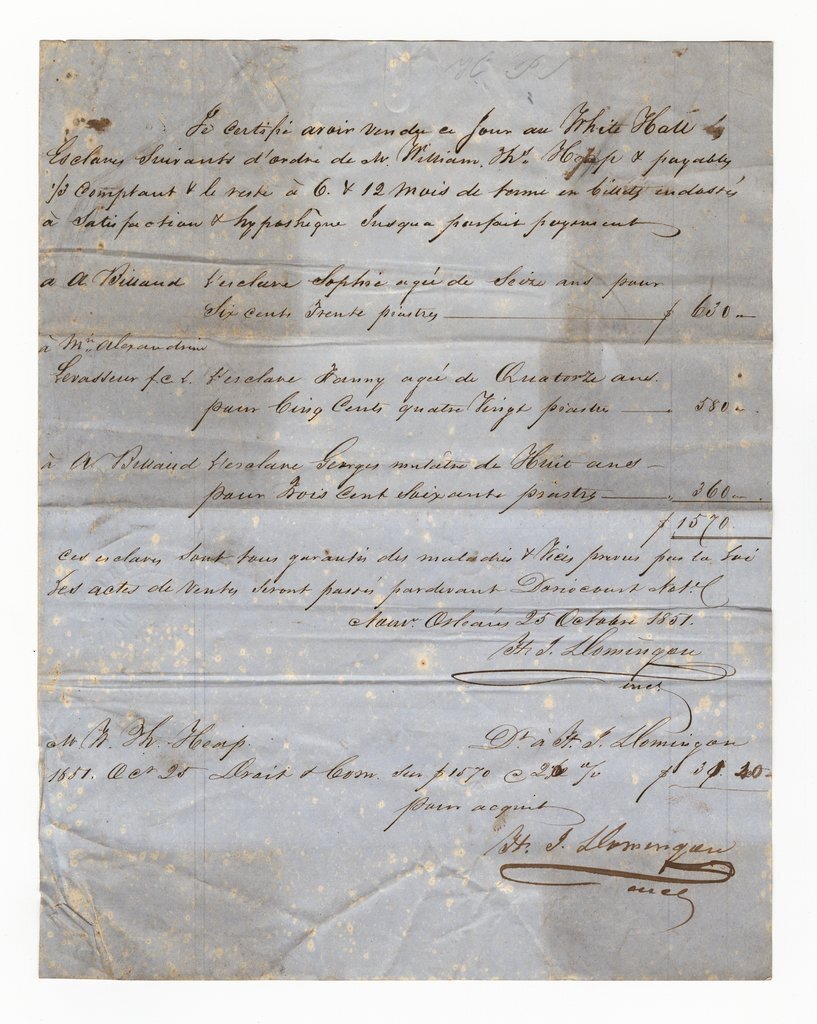 Je certifie avoir vendu ce Jour au White Hall les
Esclaves Suivants d'ordre de M. William. Ths. Heap & payables
1/3 Comptant & le reste à 6. & 12 Mois de terme en billets endossés
à Satisfaction & hypothèque Jusqu'a parfait payement
a A Billaud l'esclave Sophie agée de Seize ans pour
Six cents Trente piastres $ 630 "
à Mlle Alexandrine
Levasseur f. c. l. l'esclave Fanny agée de Quatorze ans.
pour Cinq Cents quatre Vingt piastres " 580 "
à A Billaud l'esclave Georges mulâtre de Huit ans
pour Trois Cent Soixante piastres " 360 "
$ 1570.
Ces esclaves sont tous garantis des maladies & Vices prévus par la Loi
Les actes de Ventes Seront passés pardevant Doriocourt Not.
Nouv. Orléans 25 Octobre 1851.
H. J. Domingon
enc.
M W. Th. Heap. Dr à H. J. Domingon
1851. Oct 25 Droit & Com. Sur $ 1570 @ 2 % $ 31. 40
pour acquit
H. J. Domingon
enc.